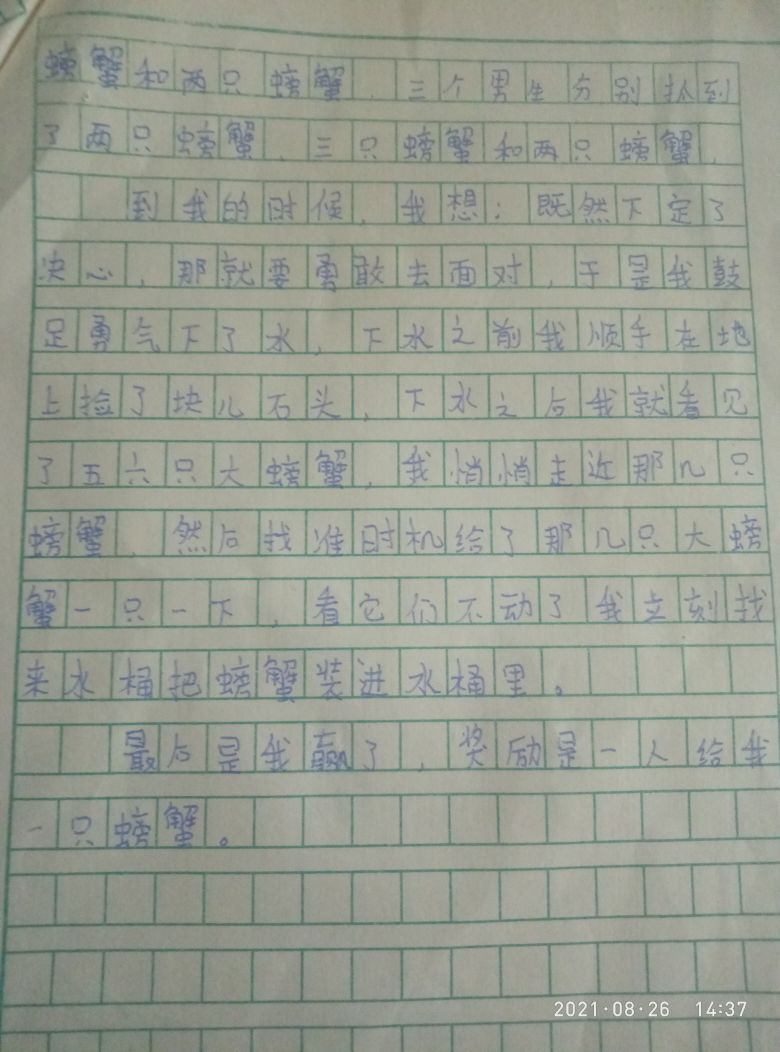 螃蟹和两只螃蟹，三个男生分别抓到
了两只螃蟹、三只螃蟹和两只螃蟹，
到我的时候，我想：既然下定了
决心，那就要勇敢去面对，于是我鼓
足勇气下了水，下水之前我顺手在地
上捡了块儿石头，下水之后我就看见
了五六只大螃蟹，我悄悄走近那几只
螃蟹，然后找准时机给了那几只大螃
蟹一只一下，看它们不动了我立刻找
来水桶把螃蟹装进水桶里。
最后是我赢了，奖励是一人给我
一只螃蟹。
2021·08·26 14:37